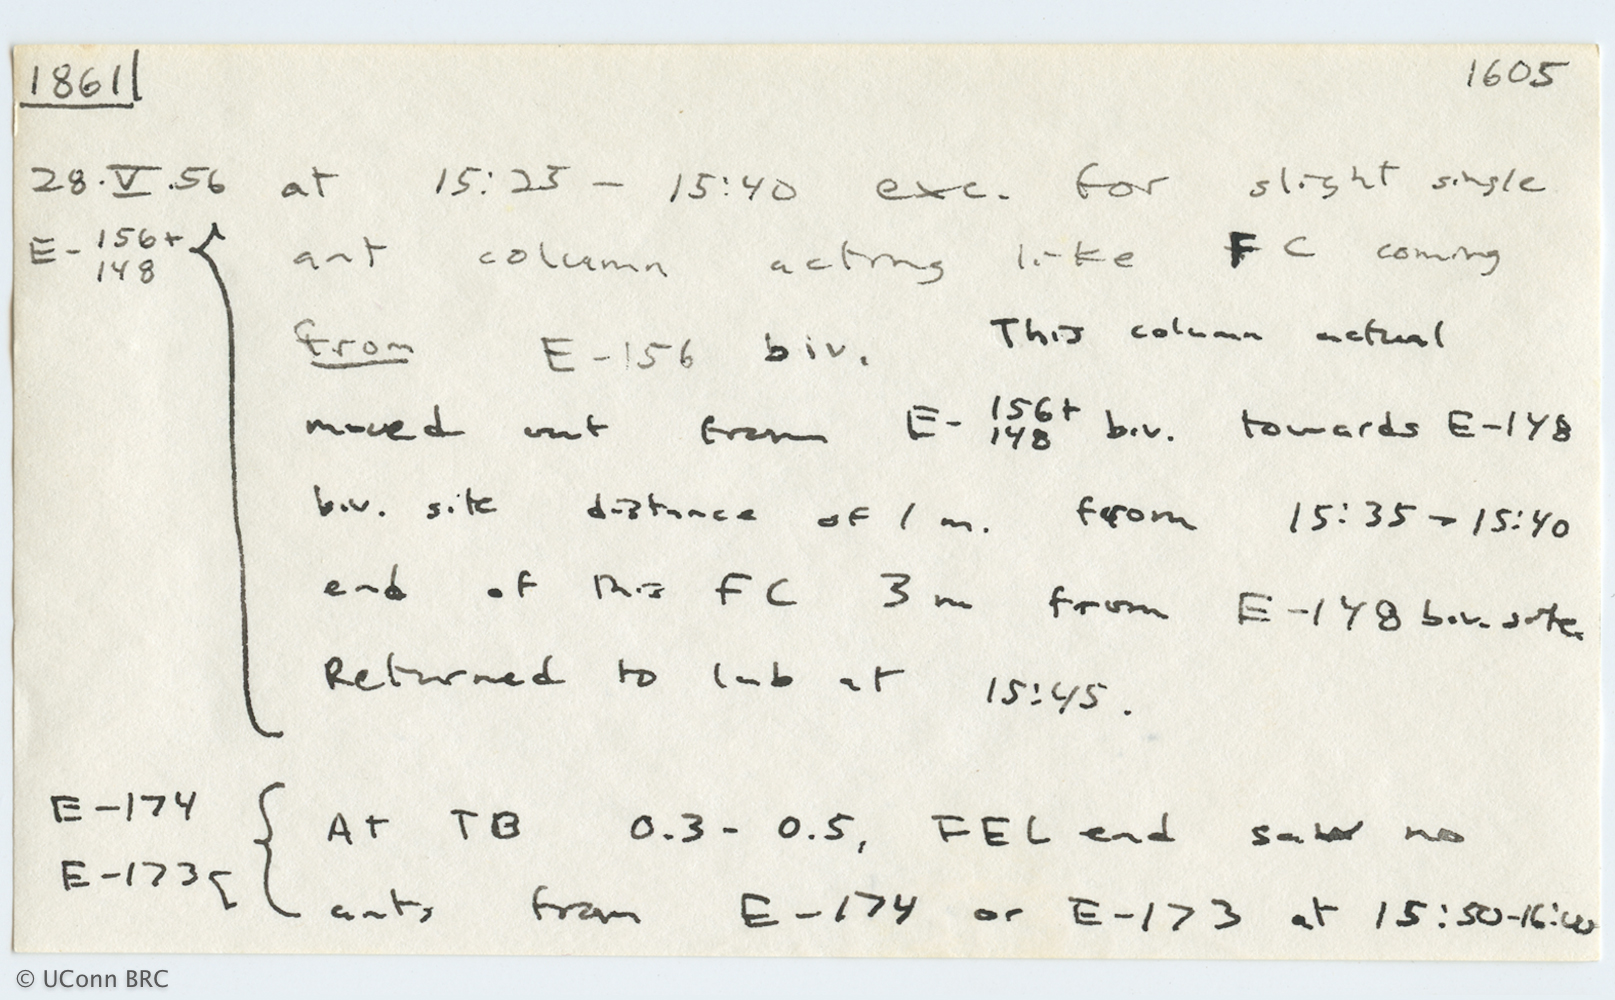 1861 1605
28.V.56 at 15:25 – 15:40 exc. for slight single
E- 156+ ant column acting like FC coming
148
from E-156 biv. This column actual
moved out from E- 156+ biv. towards E-148
148
biv. site distance of 1 m. from 15:35 – 15:40
end of this FC 3 m from E-148 biv. site.
Returned to lab at 15:45.
E-174 At TB 0.3 - 0.5, FEL end saw no
E-173 ants from E-174 or E-173 at 15:50-16:00
© UConn BRC